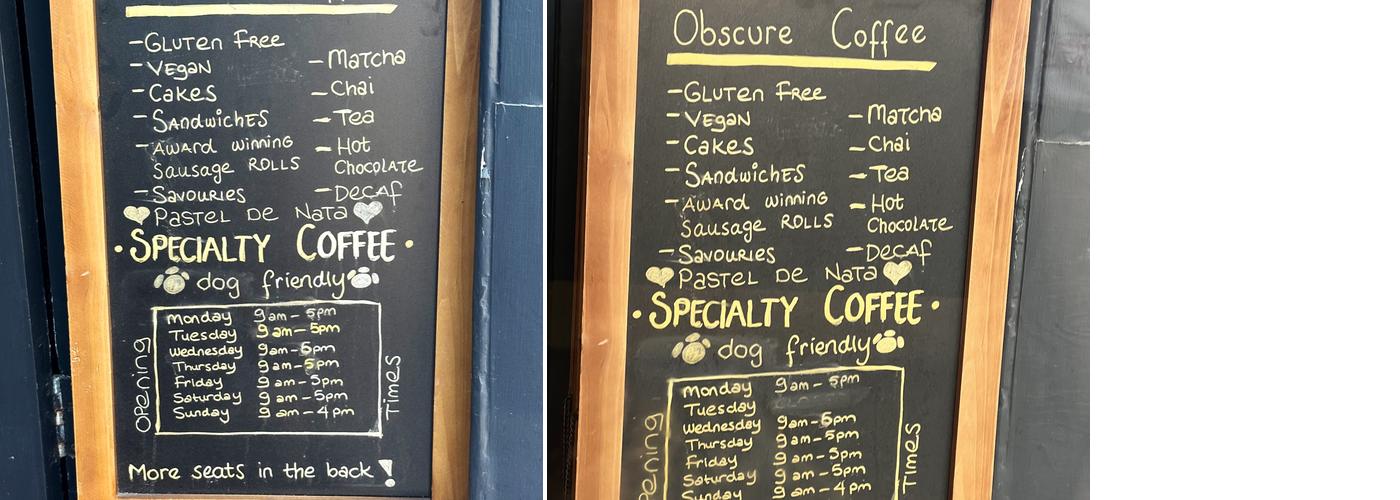 - Gluten Free
- Vegan
- Cakes
- Sandwiches
- Award winning
Sausage Rolls
- Savouries
- Matcha
- Chai
- Tea
- Hot
Chocolate
- Decaf
Pastel De Nata
• SPECIALTY COFFEE •
dog friendly
Opening
Monday 9am - 5pm
Tuesday 9am - 5pm
Wednesday 9am - 5pm
Thursday 9am - 5pm
Friday 9am - 5pm
Saturday 9am - 5pm
Sunday 9am - 4pm
Times
More seats in the back!
Obscure Coffee
- Gluten Free
- Vegan
- Cakes
- Sandwiches
- Award winning
Sausage Rolls
- Savouries
- Matcha
- Chai
- Tea
- Hot
Chocolate
- Decaf
Pastel De Nata
• SPECIALTY COFFEE •
dog friendly
Monday 9am - 5pm
Tuesday
Wednesday 9am - 5pm
Thursday 9am - 5pm
Friday 9am - 5pm
Saturday 9am - 5pm
Sunday 9am - 4pm
Times